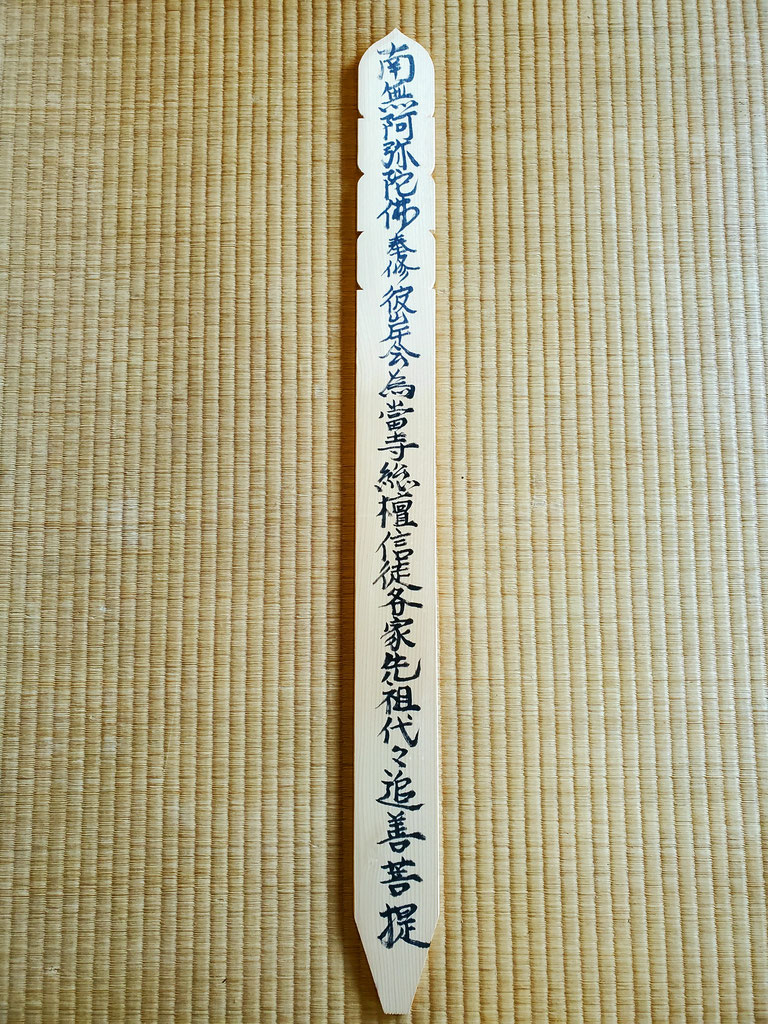 南無阿弥陀佛奉修彼岸会為當寺総檀信徒各家先祖代々追善菩提